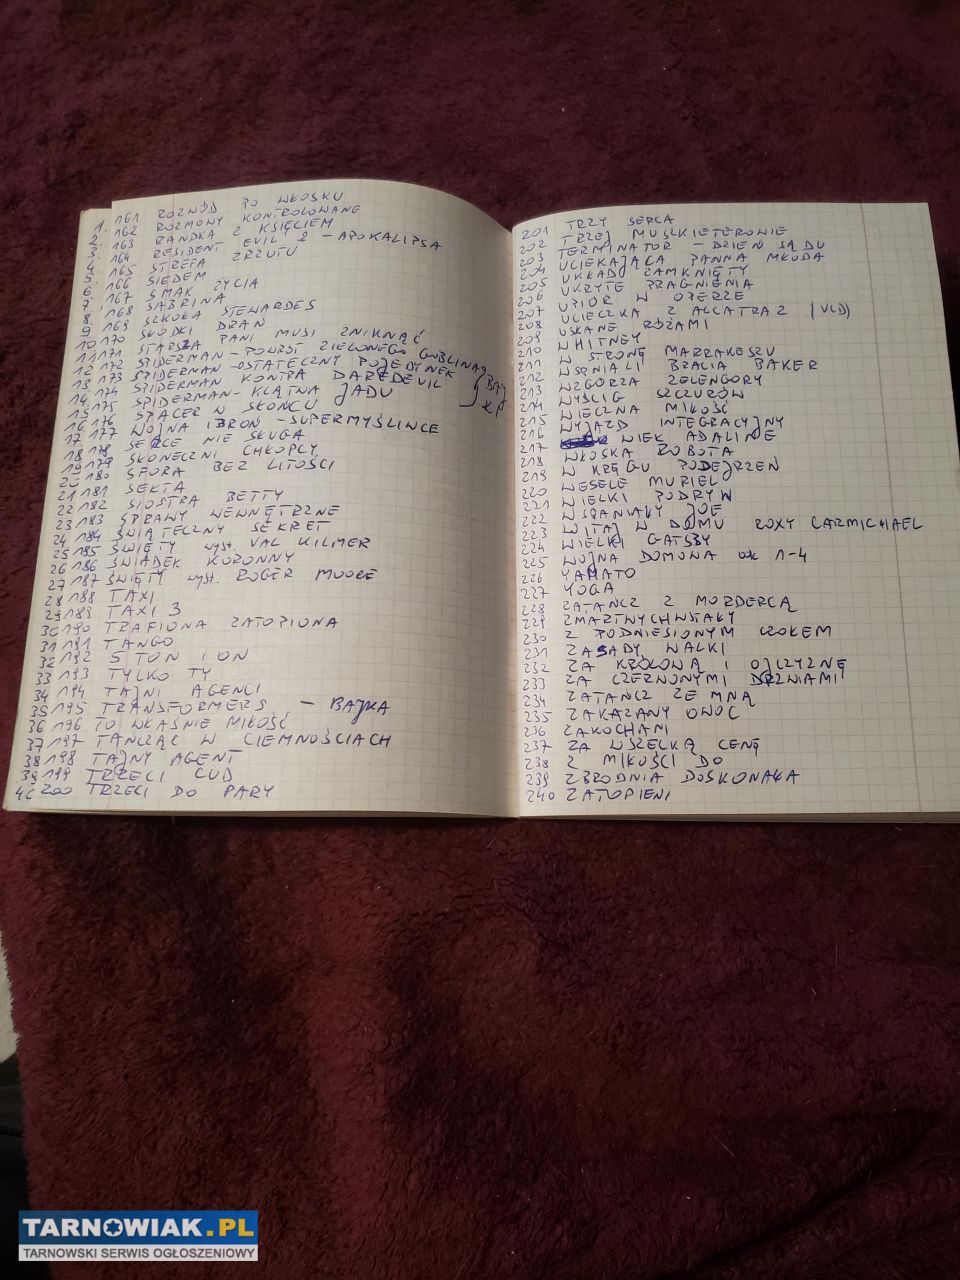 1. 161 ROZWÓD PO WŁOSKU
2. 162 ROZMOWY KONTROLOWANE
3. 163 RANDKA Z KSIĘCIEM
4 164 RESIDENT EVIL 2 - APOKALIPSA
5. 165 STREFA ZRZUTU
6 166 SIEDEM
7. 167 SMAK ŻYCIA
8. 168 SABRINA
9 169 SZKOŁA STEWARDES
10 170 SŁODKI DRAŃ
11 171 STARSZA PANI MUSI ZNIKNĄĆ
12 172 SPIDERMAN - POWRÓT ZIELONEGO GOBLINA
13 173 SPIDERMAN - OSTATECZNY POJEDYNEK
14 174 SPIDERMAN KONTRA DAREDEVIL
15 175 SPIDERMAN - KLĄTWA JADU
16 176 SPACER W SŁOŃCU
17 177 WOJNA I BROŃ - SUPERMYŚLIWCE
18 178 SERCE NIE SŁUGA
19 179 SKOŃCZENI CHŁOPCY
20 180 SFORA BEZ LITOŚCI
21 181 SEKTA
22 182 SIOSTRA BETTY
23 183 SPRAWY WEWNĘTRZNE
24 184 ŚWIĄTECZNY SEKRET
25 185 ŚWIĘTY wyst. VAL KILMER
26 186 ŚWIADEK KORONNY
27 187 ŚWIĘTY wyst. ROGER MOORE
28 188 TAXI
29 189 TAXI 3
30 190 TRAFIONA ZATOPIONA
31 191 TANGO
32 192 5 TON I ON
33 193 TYLKO TY
34 194 TAJNI AGENCI
35 195 TRANSFORMERS - BAJKA
36 196 TO WŁAŚNIE MIŁOŚĆ
37 197 TAŃCZĄC W CIEMNOŚCIACH
38 198 TAJNY AGENT
39 199 TRZECI CUD
40 200 TRZECI DO PARY
201 TRZY SERCA
202 TRZEJ MUSZKIETEROWIE
203 TERMINATOR - DZIEŃ SĄDU
204 UCIEKAJĄCA PANNA MŁODA
205 UKŁAD ZAMKNIĘTY
206 UKRYTE PRAGNIENIA
207 UPIÓR W OPERZE
208 UCIECZKA Z ALCATRAZ (VCD)
209 USŁANE RÓŻAMI
210 WHITNEY
211 W STRONĘ MARRAKESZU
212 WSPANIALI BRACIA BAKER
213 WZGÓRZA ZELENGORY
214 WYŚCIG SZCZURÓW
215 WIECZNA MIŁOŚĆ
216 WYJAZD INTEGRACYJNY
217 WIEK ADALINE
218 WŁOSKA ROBOTA
219 W KRĘGU PODEJRZEŃ
220 WESELE MURIEL
221 WIELKI PODRYW
222 WSPANIAŁY JOE
223 WITAJ W DOMU ROXY CARMICHAEL
224 WIELKI GATSBY
225 WOJNA DOMOWA 1-4
226 YAMATO
227 YOGA
228 ZATAŃCZ Z MORDERCĄ
229 ZMARTWYCHWSTAŁY
230 Z PODNIESIONYM CZOŁEM
231 ZASADY WALKI
232 ZA KRÓLOWĄ I OJCZYZNĘ
233 ZA CZERWONYMI DRZWIAMI
234 ZATAŃCZ ZE MNĄ
235 ZAKAZANY OWOC
236 ZAKOCHANI
237 ZA WSZELKĄ CENĘ
238 Z MIŁOŚCI DO
239 ZBRODNIA DOSKONAŁA
240 ZATOPIENI
TARNOWIAK.PL
TARNOWSKI SERWIS OGŁOSZENIOWY